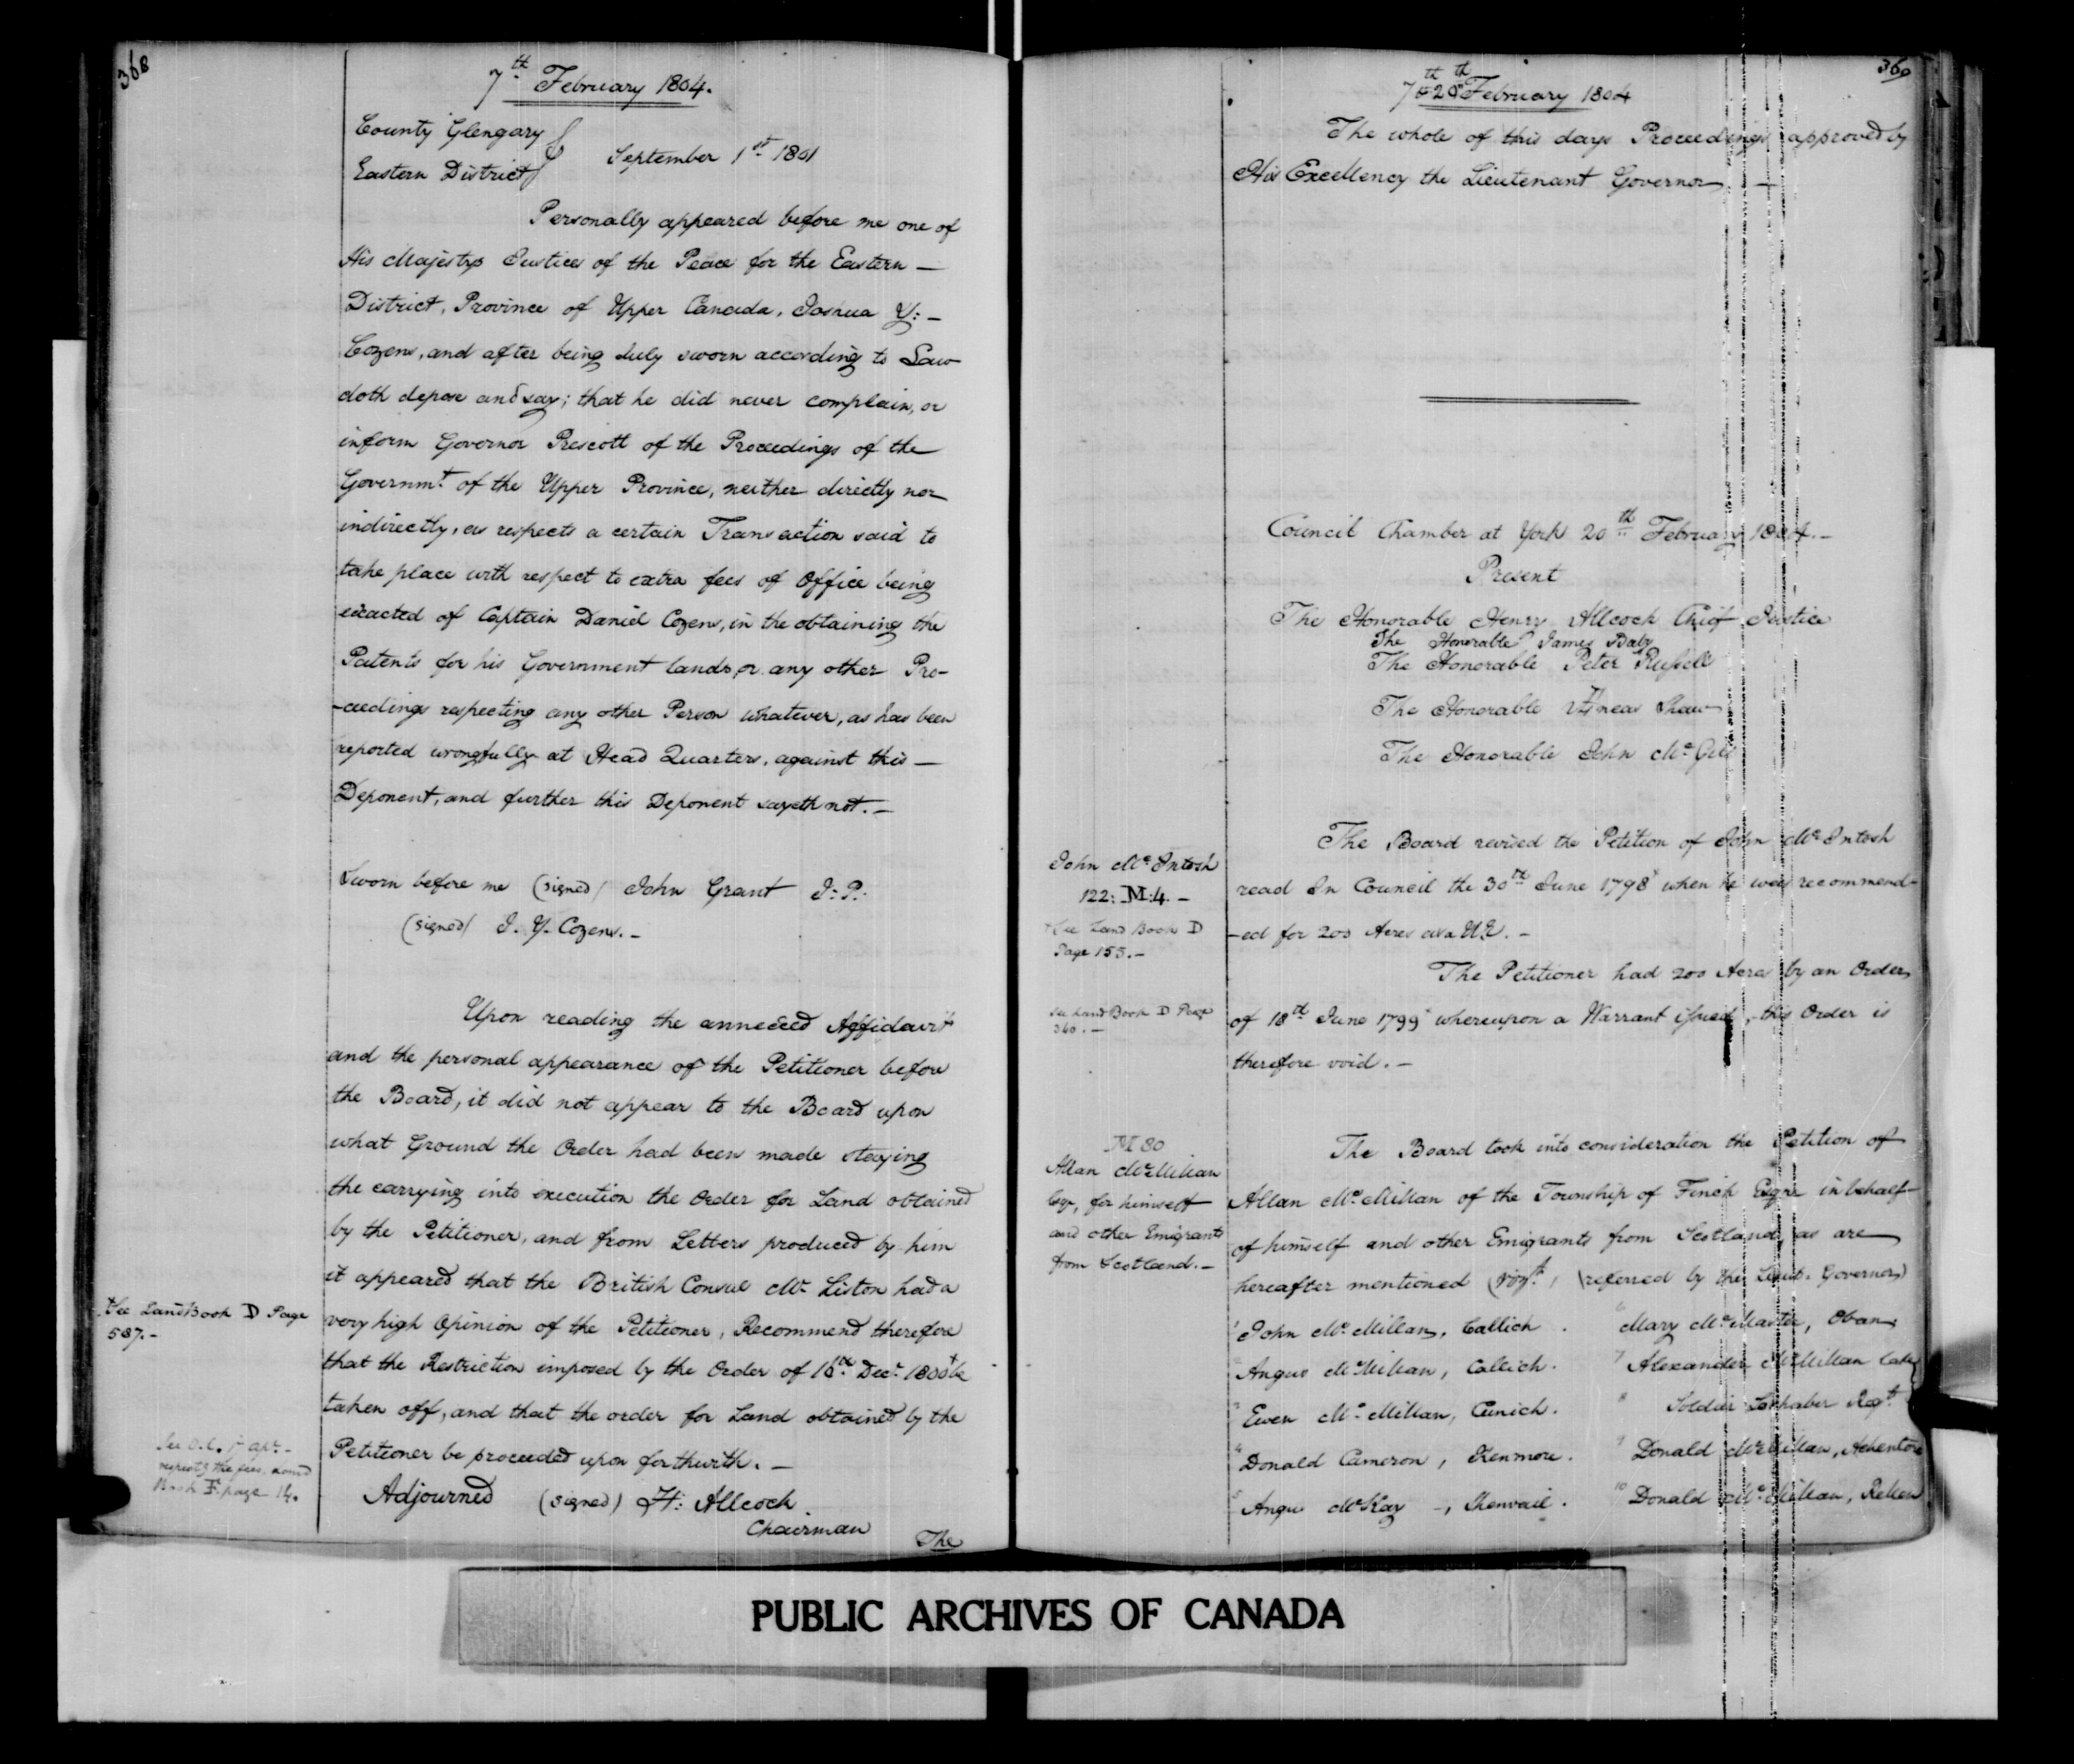 368
7th February 1804.
County Glengary
Eastern District
September 1st 1801
Personally appeared before me one of
His Majestys Justices of the Peace for the Eastern —
District, Province of Upper Canada, Joshua Y: —
Cozens, and after being duly sworn according to Law
doth depose and say; that he did never complain, or
inform Governor Prescott of the Proceedings of the
Governmt. of the Upper Province, neither directly nor
indirectly, as respects a certain Transaction said to
take place with respect to extra fees of Office being
exacted of Captain Daniel Cozens, in the obtaining the
Patents for his Government lands, or any other Pro-
-ceedings respecting any other Person whatever, as has been
reported wrongfully at Head Quarters, against this —
Deponent, and further this Deponent sayeth not. —
Sworn before me (signed) John Grant J: P:
(signed) J. Y. Cozens. —
Upon reading the annexed Affidavit
and the personal appearance of the Petitioner before
the Board, it did not appear to the Board upon
what Ground the Order had been made staying
the carrying into execution the Order for Land obtained
by the Petitioner, and from Letters produced by him
it appeared that the British Consul Mr. Liston had a
+See Land Book D Page
587. -
very high Opinion of the Petitioner, Recommend therefore
that the Restriction imposed by the Order of 16th Decr. 1800+ be
taken off, and that the order for Land obtained by the
Petitioner be proceeded upon forthwith. —
respectg the fees, Land
Book F. page 14.
Adjourned (signed) H: Allcock
Chairman
The
369
7th & 20th February 1804
The whole of this days Proceedings approved by
His Excellency the Lieutenant Governor. —
Council Chamber at York 20th February 1804. —
Present
The Honorable Henry Allcock Chief Justice
The Honorable James Baby
The Honorable Peter Russell
The Honorable Æneas Shaw
The Honorable John McGill
John McIntosh
122: M:4. —
+See Land Book D
Page 155. —
The Board revised the Petition of John McIntosh
read In Council the 30th June 1798+ when he was recommend-
-ed for 200 Acres as a U.E. —
The Petitioner had 200 Acres by an Order
See Land Book D Page
340. —
of 18th June 1799+ whereupon a Warrant issued, this Order is
therefore void. —
M 80
Allan McMillan
Esqr. for himself
and other Emigrants
from Scotland. —
The Board took into consideration the Petition of
Allan McMillan of the Township of Finch Esqre in behalf
of himself and other Emigrants from Scotland, as are
hereafter mentioned (referred by the Lieut. Governor)
1 John McMillan, Callich . 6 Mary McMaster, Oban.
2 Angus McMillan, Callich. 7 Alexander McMillan late
3 Ewen McMillan, Cunich. 8 Soldier Lochaber Regt.
4 Donald Cameron, Kenmore. 9 Donald McMillan, Achentore
5 Angus McKay —, Shenvail. 10 Donald McMillan, Rellen
PUBLIC ARCHIVES OF CANADA